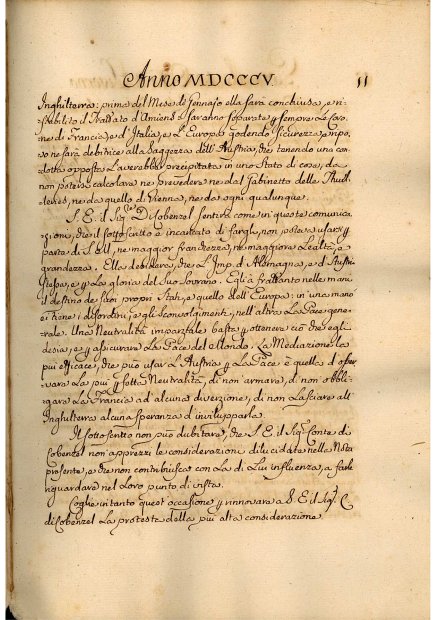 Anno MDCCCV 11
Inghilterra: prima del Mese di Gennajo ella sarà conchiusa, e ri-
stabilito il Trattato d'Amiens saranno separate sempre le Coro-
ne di Francia, e d'Italia, e l'Europa godendo sicurezza, e ripo-
so ne sarà debitrice alla Saggezza dell'Austria, che tenendo una con-
dotta opposta l'averebbe precipitata in uno Stato di cose, da
non potersi calcolare ne prevedere ne dal Gabinetto delle Thuil-
leries, ne da quello di Vienna, ne da ogni qualunque.
S. E. il Sig.r Co: di Cobenzel sentirà come in queste comunica-
zioni, che il sottoscritto è incaricato di fargli, non potea usarsi p
parte di S. M. ne maggior franchezza, ne maggiore Lealtà, e
grandezza. Ella desidera, che L'Imp. d'Alemagna, e d'Austria
stessa, e p La gloria del suo Sovrano. Egli à frattanto nelle mani
il destino de suoi propri Stati, e quello dell'Europa: in una mano
ei tiene i disordini, e gli sconvolgimenti, nell'altra La Pace gene-
rale. Una Neutralità imparziale basta p ottenere ciò che egli
desia, e p assicurare La Pace del Mondo. La Mediazione la
più efficace, che può usar L'Austria p La Pace è quella d'osser-
vare La più stretta Neutralità, di non armare, di non obbli-
gare La Francia ad alcuna diverzione, di non Lasciare all'
Inghilterra alcuna speranza d'invilupparla.
Il sottoscritto non può dubitare, che S. E. il Sig.r Conte di
Cobenzel non apprezzi le considerazioni dilucidate nella Nota
presente, e che non contribuisca con La di Lui influenza, a farle
riguardare nel Loro punto di vista.
Coglie intanto quest'occasione p rinnovare a S. E. il Sig.r C.
di Cobenzel La protesta della più alta considerazione.